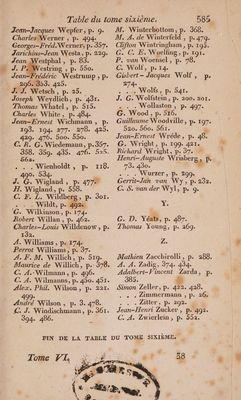 Table du tome sixième. 585
Jean-Jacques Wepfer, p. 9.
Charles Werner, p. 494.
Georges-Fréd. Werner, p. 357.
Zarichias-Jean Westa, p. 229.
Jean Westphal, p. 83.
J. P. Westring, p. 550.
Jean-Frédéric Westrump, p. 296. 353. 425.
J. J. Wetsch, p. 25.
Joseph Weydlich, p. 431.
Thomas Whatel, p. 515.
Charles White, p. 484.
Jean-Ernest Wichmann, p. 193. 194. 277. 278. 425. 429. 476. 500. 550.
C. R. G. Wiedemann, p. 357. 358. 359. 435. 476. 525. 562.
. . . . Wienholdt, p. 118. 490. 534.
J. G. Wigland, p. 477.
H. Wigland, p. 558.
C. F. L. Wildberg, p. 301.
. . . . Wildt, p. 492.
C. Wilkinson, p. 174.
Robert Willan, p. 462.
Charles-Louis Willdenow, p. 132.
A. Williams, p. 174.
Perrot Williams, p. 37.
A. F. M. Willich, p. 519.
Maurice de Willich, p. 378.
C. A. Wilmann, p. 496.
C. A. Wilmanns, p. 430. 451.
Alex. Phil. Wilson, p. 221. 499.
André Wilson, p. 3. 478.
C. J. Windischmann, p. 361. 394. 486.
M. Winterbottom, p. 368.
M. A. de Winterfeld, p. 479.
Clifton Wintringham, p. 195.
G. C. E. Woelling, p. 191.
P. van Woensel, p. 78.
C. Wolf, p. 14.
Gisbert-Jacques Wolf, p. 274.
. . . . Wolfs, p. 541.
J. G. Wolfstein, p. 200. 201.
. . . . Wollaston, p. 497.
G. Wood, p. 526.
Guillaume Woodville, p. 197. 520. 560. 561.
Jean-Ernest Wrède, p. 48.
G. Wright, p. 199. 421.
Richard Wright, p. 37.
Henri-Auguste Wrisberg, p. 73. 430.
. . . . Wurzer, p. 299.
Gerrit-Jan van Wy, p. 232.
C. S. van der Wyl, p. 9.
Y.
G. D. Yéats, p. 487.
Thomas Young, p. 269.
Z.
Mathieu Zacchirolli, p. 288.
A. A. Zadig, 374. 434.
Adalbert-Vincent Zarda, p. 385.
Simon Zeller, p. 422. 428.
. . . . Zimmermann, p. 26.
. . . . Zitter, p. 292.
Jean-Henri Zucker, p. 492.
C. A. Zwierlein, p. 552.
FIN DE LA TABLE DU TOME SIXIÈME.
Tome VI. 38